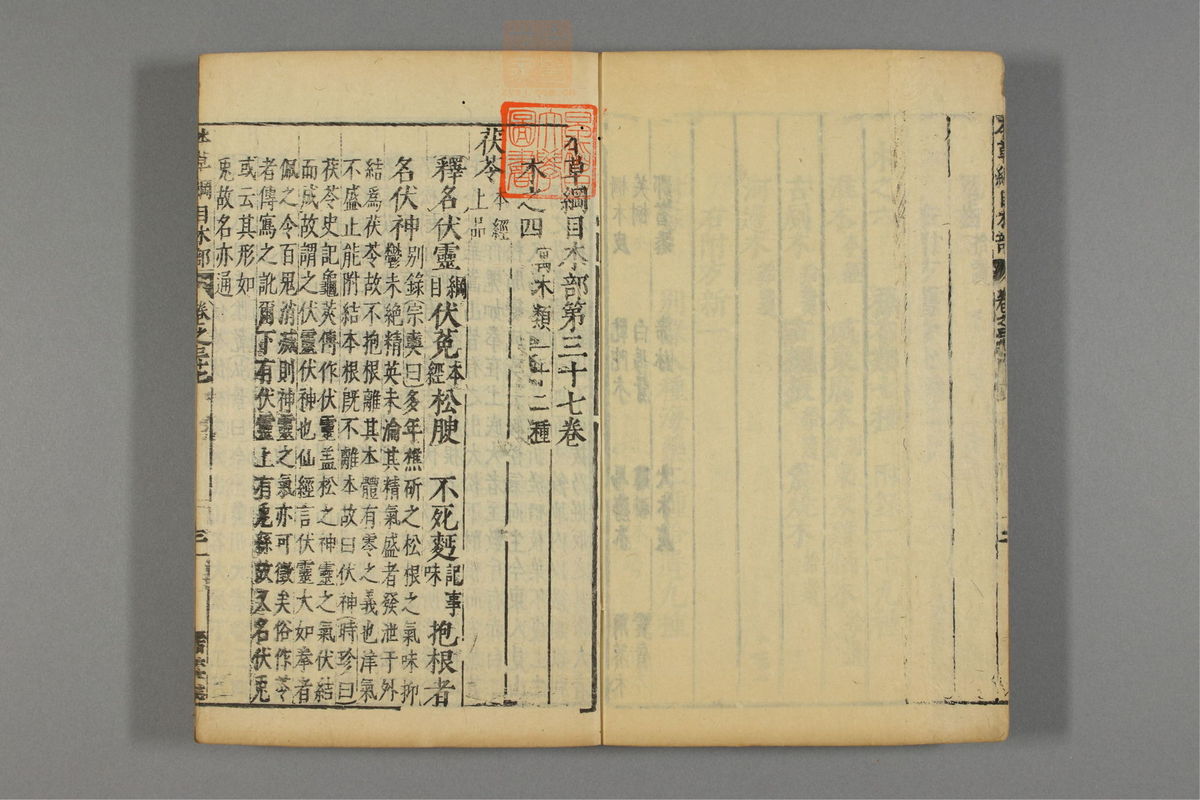 本草綱目木部第三十七卷
木之四 寓木類一十二種
茯苓 本經上品
釋名伏靈 綱目 伏菟 本經 松腴 不死麪 記事味 抱根者
名伏神 別錄 宗奭曰多年樵斫之松根之氣味抑
鬱未絕精英未淪其精氣盛者發泄于外
結爲茯苓故不抱根離其本體有零之義也津氣
不盛止能附結本根既不離本故曰伏神 時珍曰
茯苓史記龜莢傳作伏靈盖松之神靈之氣伏結
而成故謂之伏靈伏神也仙經言伏靈大如拳者
佩之令百鬼消滅則神靈之氣亦可徵矣俗作苓
者傳寫之訛爾下有伏靈上有兎絲故又名伏兎
或云其形如
兎故名亦通
本草綱目木部 卷之三七 三